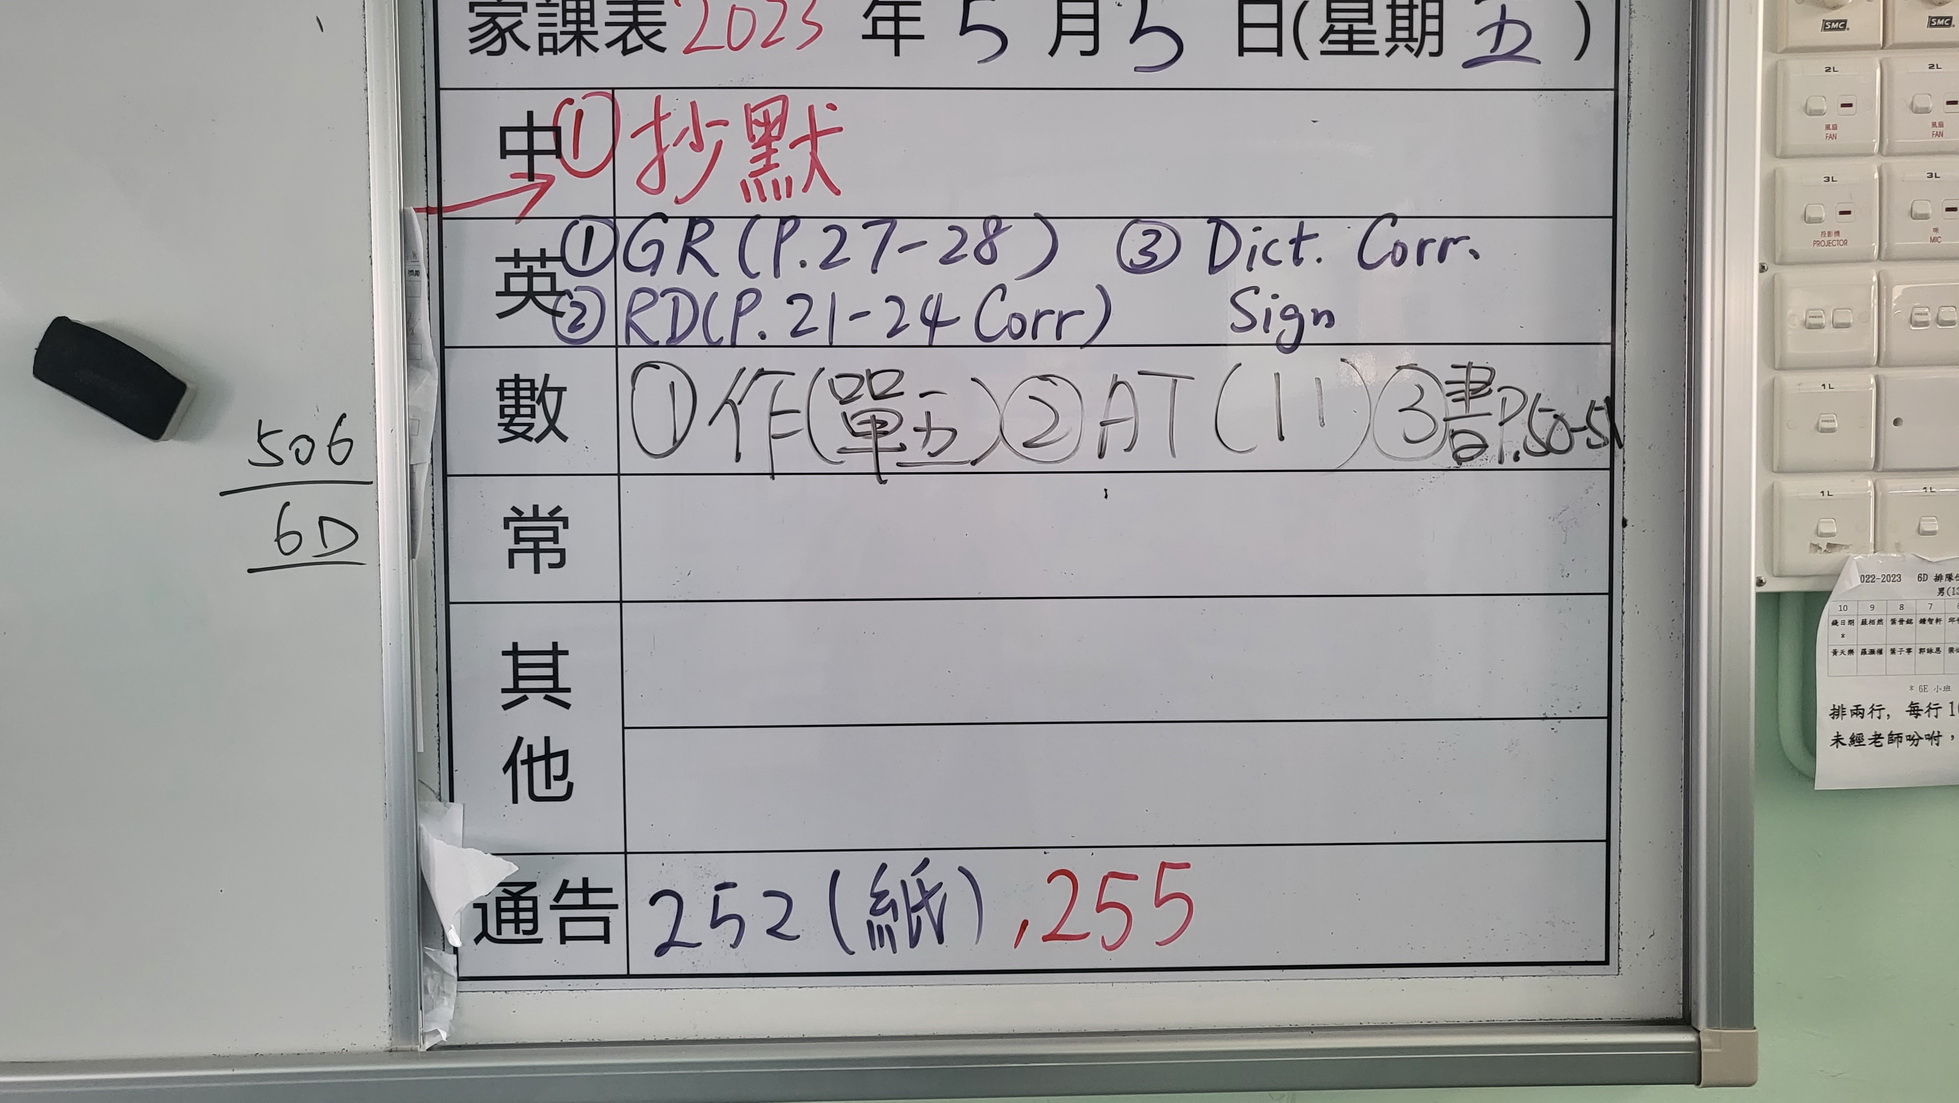 家課表 2023 年 5 月 5 日(星期 五 )
中 ① 抄默
英 ① GR (P.27-28) ③ Dict. Corr.
② RD (P.21-24 Corr) Sign
數 ① 作(單五) ② AT (11) ③ 書P.50-51
常
其他
通告 252 (紙) , 255
506
6D
SMC
SMC
2L
2L
風扇
FAN
風扇
FAN
3L
3L
投影機
PROJECTOR
MIC
1L
1L
1L
022-2023 6D 排隊
男(1
10 9 8 7
* 6E 小班
排兩行, 每行1
未經老師吩咐,